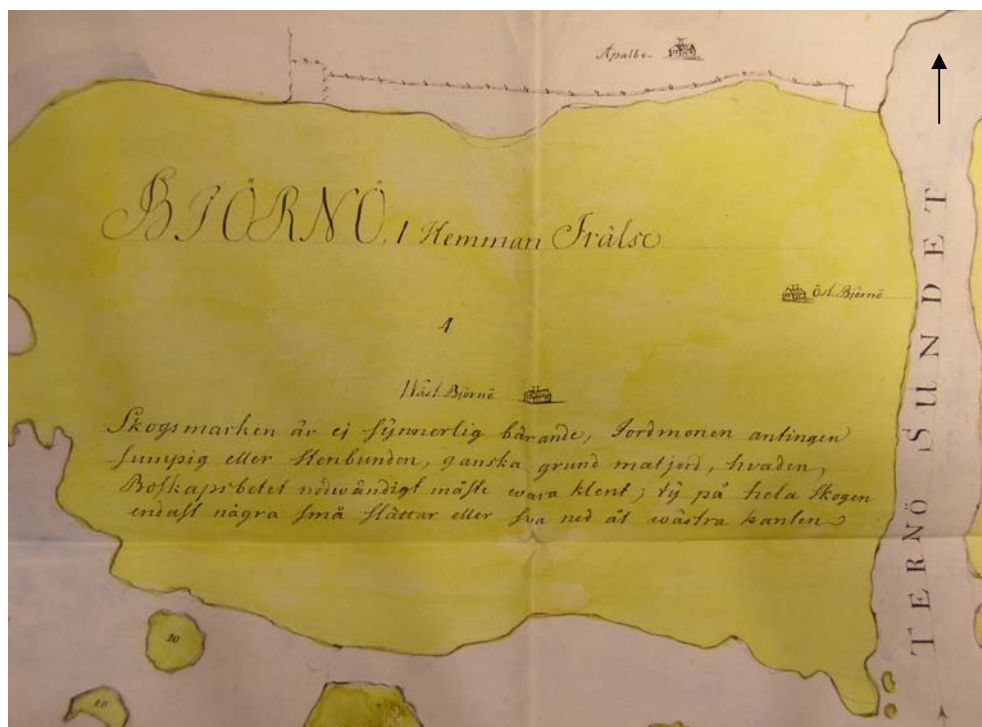 Apalbo
BIÖRNÖ, 1 Hemman Frälse
Öst. Biörnö
4
Wäst. Biörnö
Skogsmarken är ej synnerlig bärande, Jordmonen antingen
sumpig eller stenbunden, ganska grund matjord, hvaden,
Boskapsbetet nödwändigt måste wara klent; ty på hela skogen
endast några små slättar eller sva ned åt wästra kanten
TERNÖ SUNDET
20